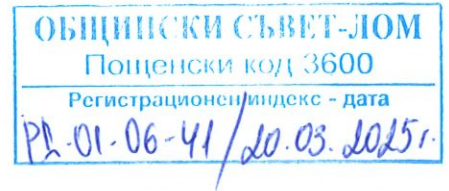 ОБЩИНСКИ СЪВЕТ-ЛОМ
Пощенски код 3600
Регистрационен индекс - дата
РД-01-06-41/20.03.2025г.